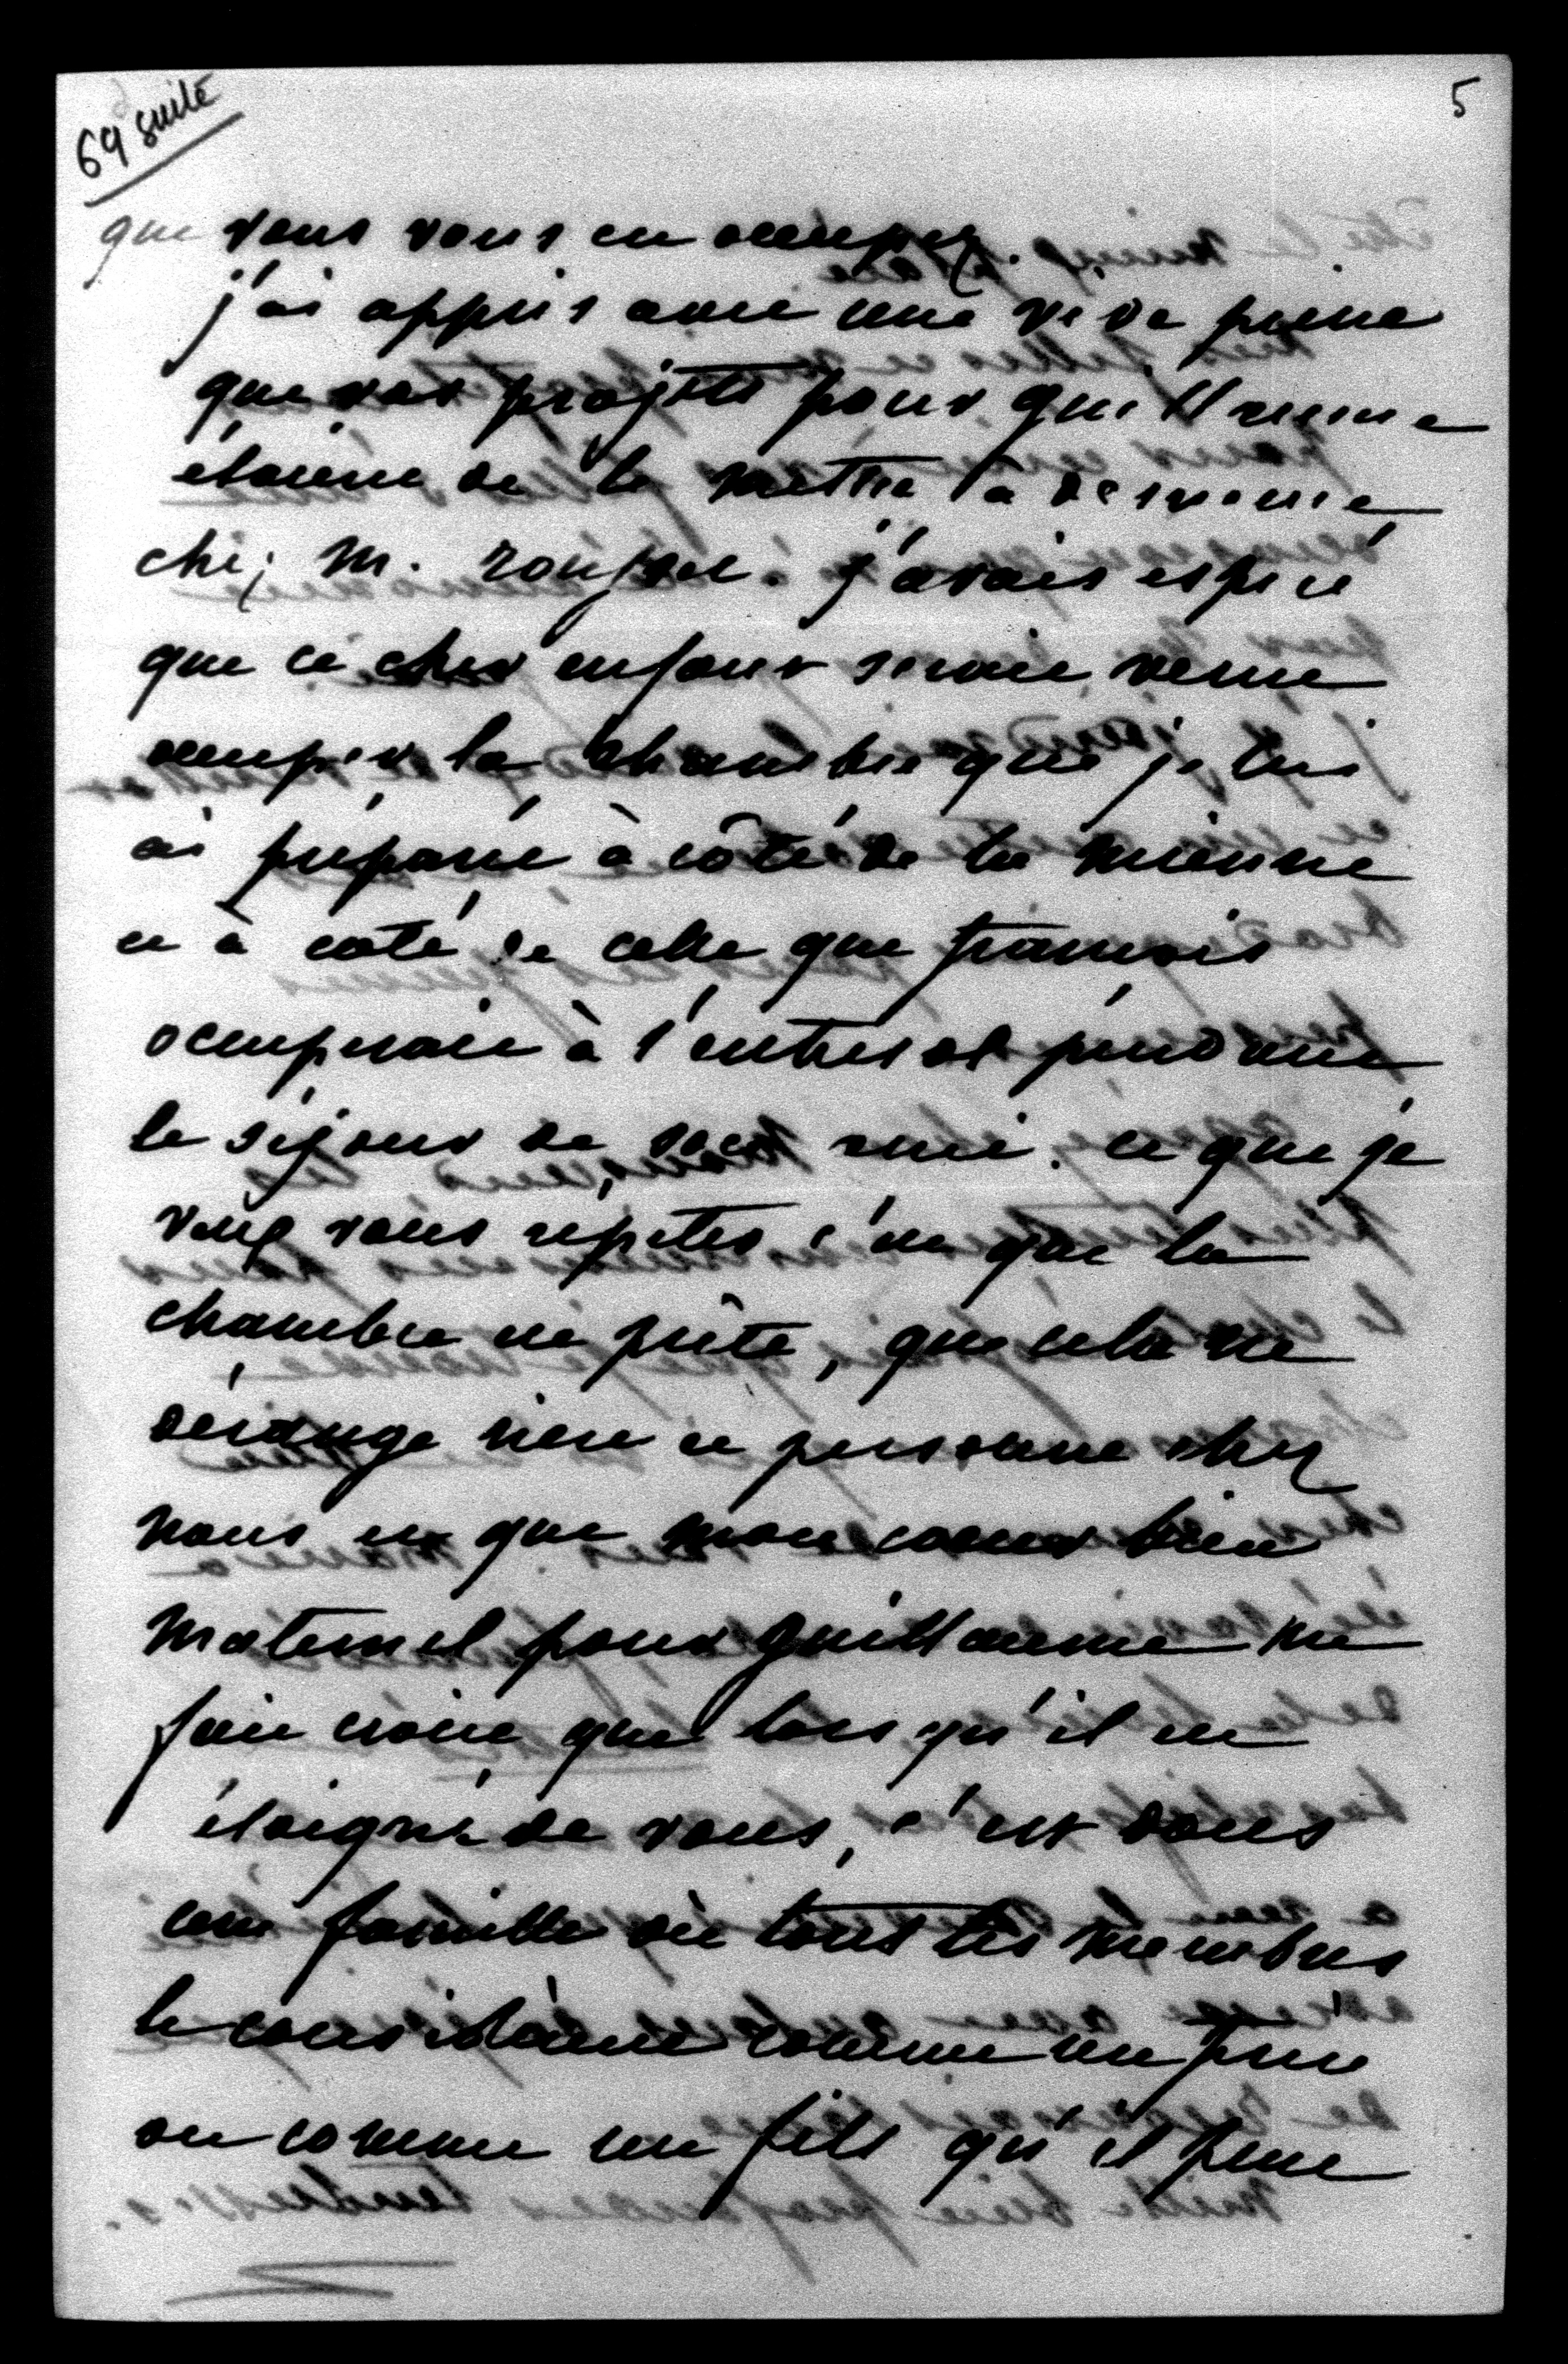 69 suite
5
que vous vous en occupez.
j'ai appris avec une vive peine
que vos projets pour guillaume
étaient de le mettre à demeure
chez M. roujon. j'avais espéré
que ce cher enfant serait venu
occuper la chambre que je lui
ai préparé à côté de la mienne
et à coté de celle que francois
occuperait à l'entresol pendant
le séjour de rené. ce que je
veux vous répéter c'est que la
chambre est prête, que cela ne
dérange rien et personne chez
nous et que mon coeur bien
maternel pour guillaume me
fait croire que lors qu'il est
éloigné de vous, c'est dans
une famille où tous les membres
le considèrent comme un frère
ou comme un fils qu'il peut